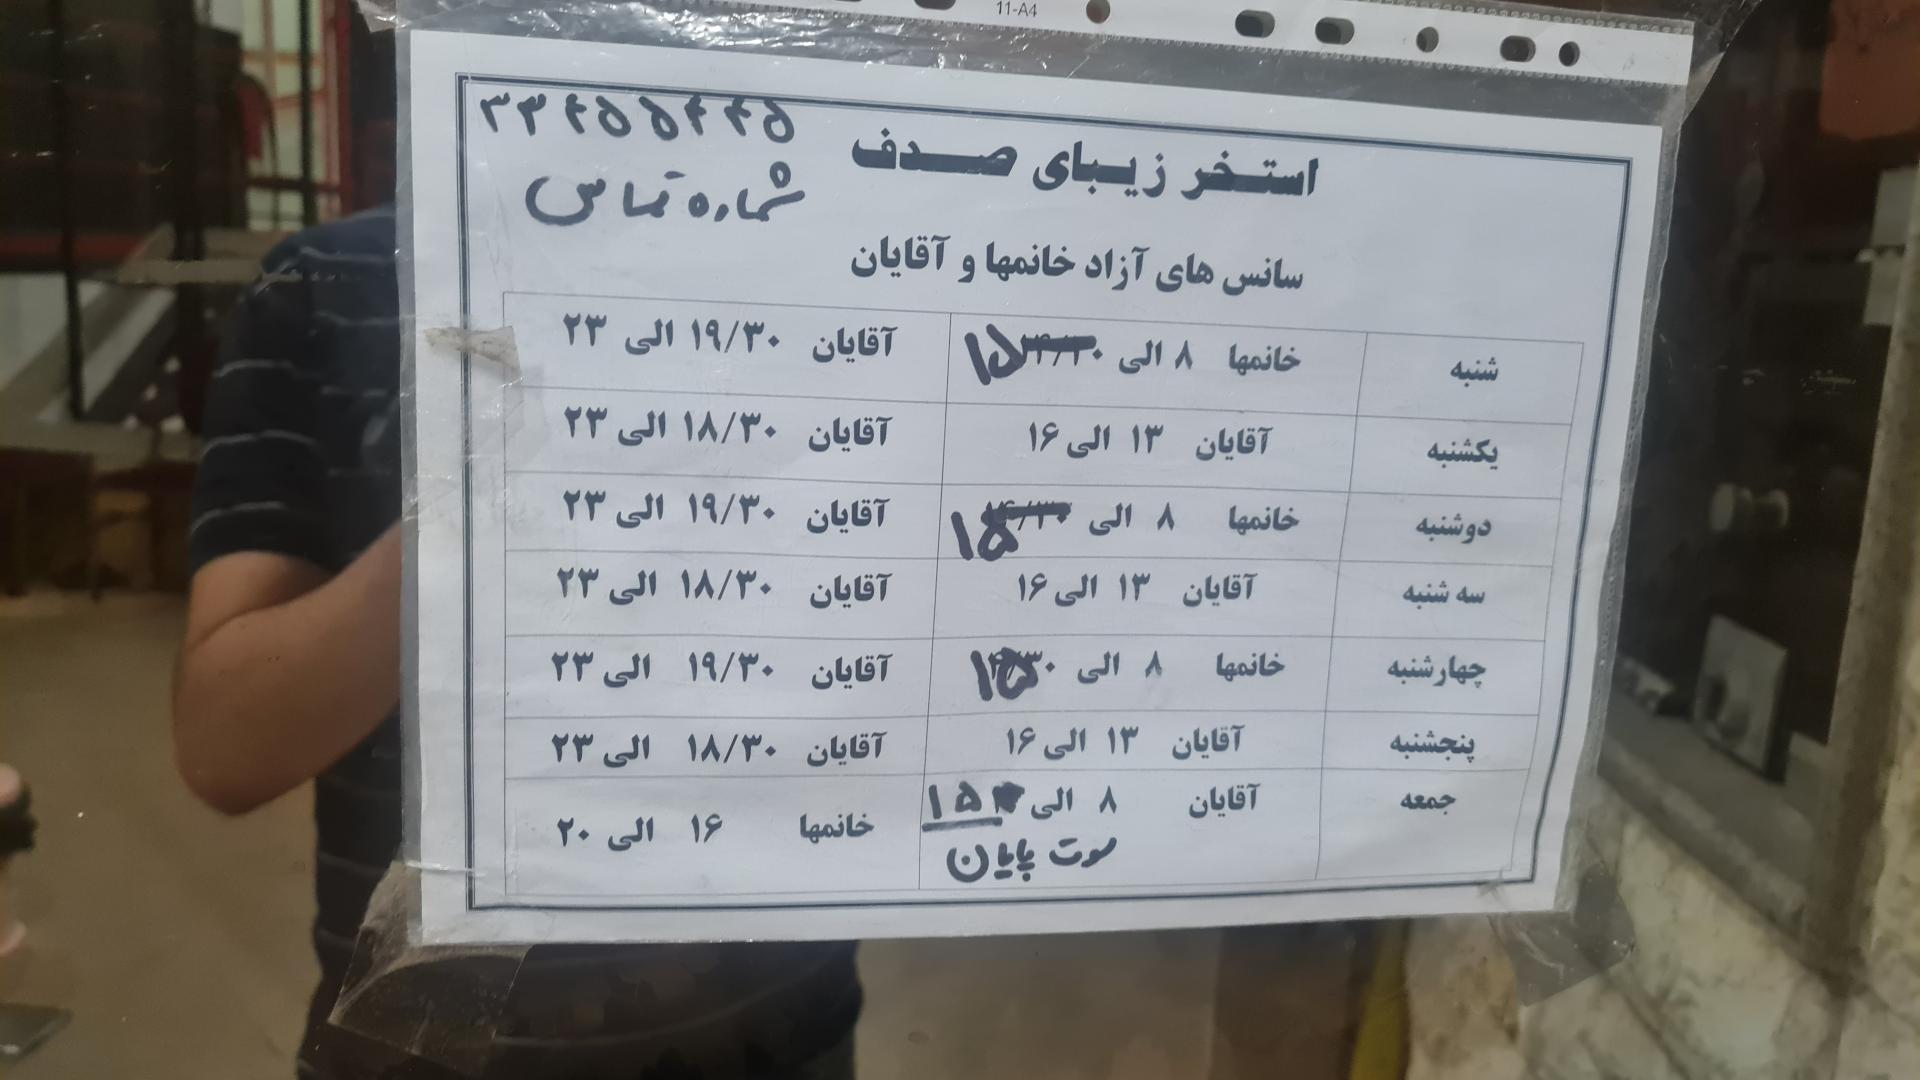 11-A4
۳۳۴۵۵۴۴۵
استخر زیبای صدف
شماره تماس
سانس های آزاد خانمها و آقایان
شنبه خانمها ۸ الی ۱۵ آقایان ۱۹/۳۰ الی ۲۳
یکشنبه آقایان ۱۳ الی ۱۶ آقایان ۱۸/۳۰ الی ۲۳
دوشنبه خانمها ۸ الی ۱۵ آقایان ۱۹/۳۰ الی ۲۳
سه شنبه آقایان ۱۳ الی ۱۶ آقایان ۱۸/۳۰ الی ۲۳
چهارشنبه خانمها ۸ الی ۱۵ آقایان ۱۹/۳۰ الی ۲۳
پنجشنبه آقایان ۱۳ الی ۱۶ آقایان ۱۸/۳۰ الی ۲۳
جمعه آقایان ۸ الی ۱۵ خانمها ۱۶ الی ۲۰
سوت پایان